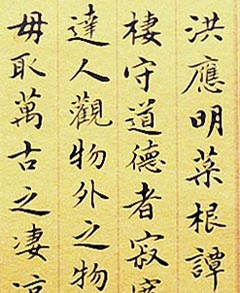 洪應明菜根譚
棲守道德者寂
達人觀物外之物
毋取萬古之凄